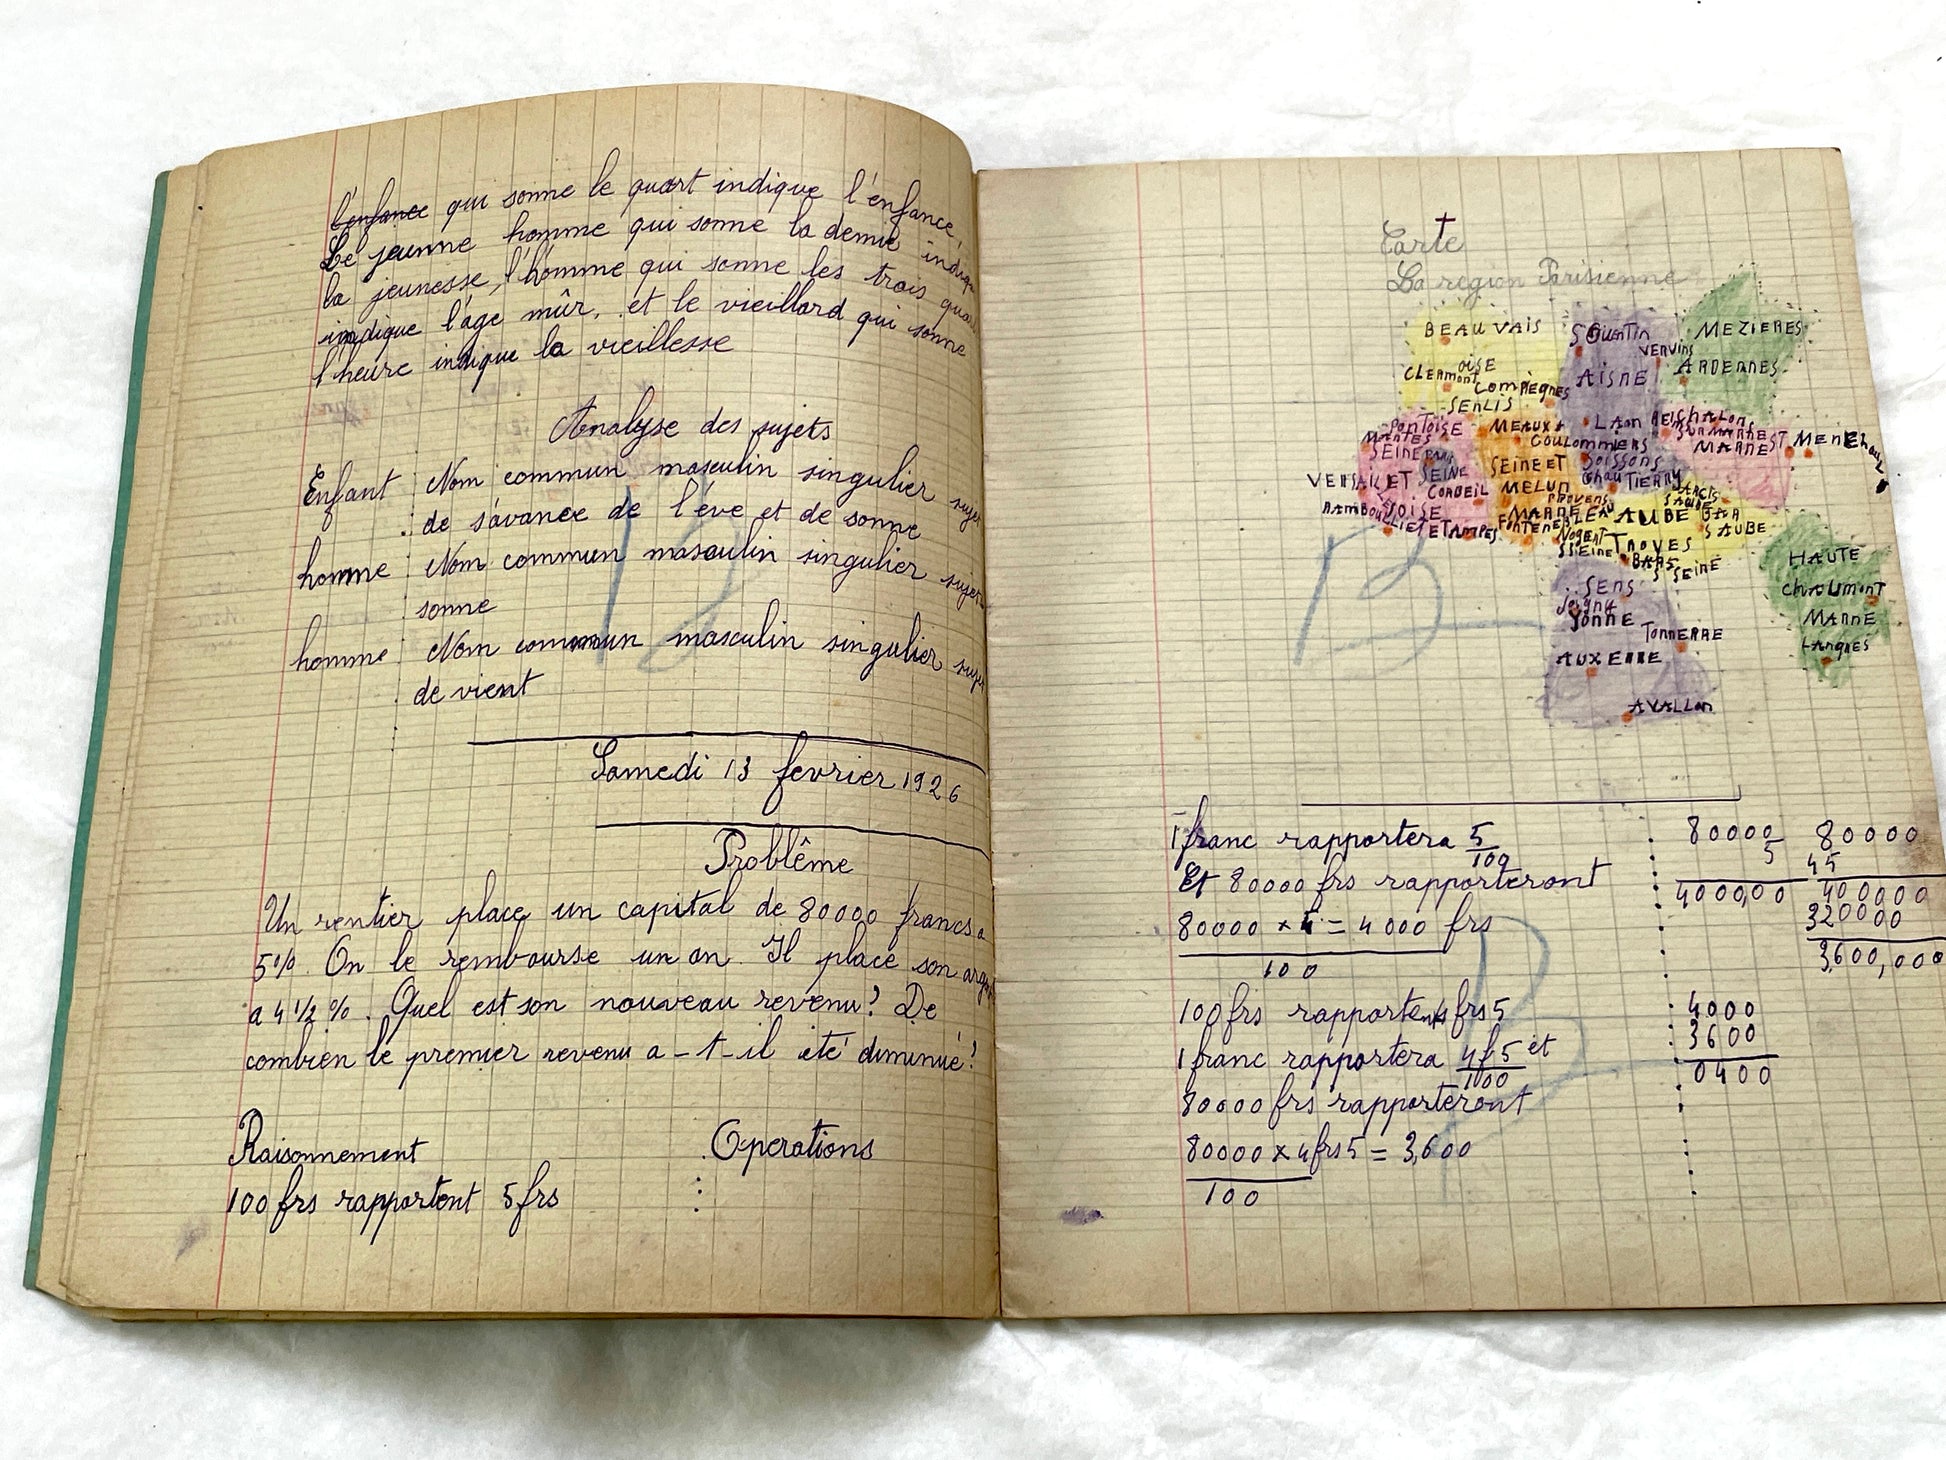 l'enfance qui sonne le quart indique l'enfance,
Le jeunne homme qui sonne la demie indique
la jeunesse, l'homme qui sonne les trois quar
indique l'age mûr, et le vieillard qui sonne
l'heure indique la vieillesse
Analyse des sujets
Enfant Nom commun masculin singulier sujet
de s'avance de l'éve et de sonne
homme Nom commun masculin singulier sujet
sonne
homme Nom commun masculin singulier sujet
de vient
Samedi 13 fevrier 1926
Problême
Un rentier place un capital de 80000 francs a
5%. On le rembourse un an. Il place son argent
a 4 1/2 %. Quel est son nouveau revenu? De
combien le premier revenu a-t-il été diminué?
Raisonnement Operations
100 frs rapportent 5 frs
Carte
La region Parisienne
BEAUVAIS
S QuENTiN
MEZIERES
VERVINS
OISE
CLERmont
AiSNE
ARDENNES
ComPiEgNES
SENLIS
PonToiSE
MEAUX
LAon
REiS
ChALONS
SUR MARNE
MANTES
COULOMMiERS
MARNE
ST MENEHouL
SEINE
PARIS
SEiNE ET
SoiSSonS
VERSAiL
ET
SEINE
ChauTIERRy
CORBEIL
MELUN
ARCIS
SAUBE
OiSE
PROVENS
MARNE
AUBE
BAR
SAUBE
RAMBOUILLIET
ETAMPES
FONTENEBLEAU
NogENT
SSEINE
TROYES
BARS
SEINE
HAUTE
SENS
ChAUMonT
Joigny
YONNE
MARNE
TONNERRE
LANgRES
AUXERRE
AVALLON
1 franc rapportera 5
100
Et 80000 frs rapporteront
80000 × 5 = 4000 frs
100
100 frs rapportent 4frs 5
1 franc rapportera 4f5 et
100
80000 frs rapporteront
80000 × 4frs5 = 3,600
100
80000 80000
5 45
4000,00 400000
320000
3,600,000
4000
3600
0400